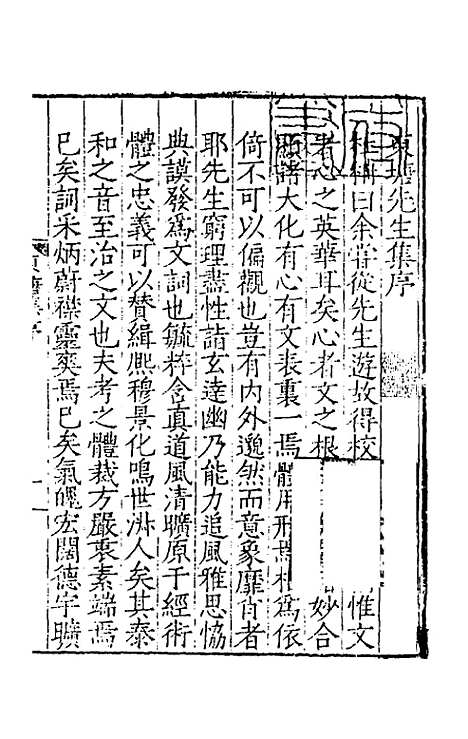 東塘先生集序
杜柟曰余嘗從先生遊故得校惟文
者心之英華耳矣心者文之根妙合
諸大化有心有文表裏一焉體用形焉相爲依
倚不可以偏觀也豈有內外邈然而意象靡肖者
耶先生窮理盡性詣玄達幽乃能力追風雅思恊
典謨發爲文詞也毓粹含眞道風清曠原于經術
體之忠義可以賛緝熈穆景化鳴世淋人矣其泰
和之音至治之文也夫考之體裁方嚴衷素端焉
已矣詞釆炳蔚襟靈爽焉已矣氣魄宏闊德宇曠
東塘集序
一